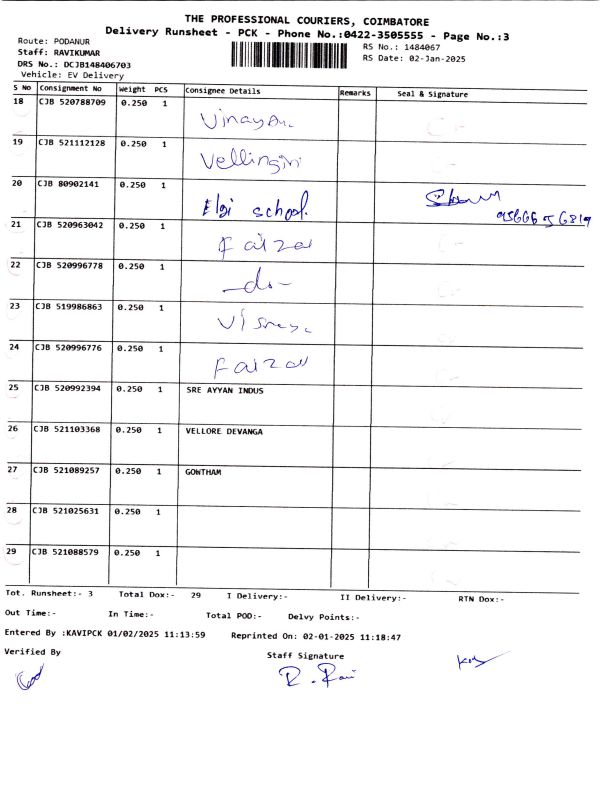 THE PROFESSIONAL COURIERS, COIMBATORE
Delivery Runsheet - PCK - Phone No.:0422-3505555 - Page No.:3
Route: PODANUR
Staff: RAVIKUMAR
DRS No.: DCJB148406703
Vehicle: EV Delivery
RS No.: 1484067
RS Date: 02-Jan-2025
S No Consignment No Weight PCS Consignee Details Remarks Seal & Signature
18 CJB 520788709 0.250 1
19 CJB 521112128 0.250 1 Vellingiri
20 CJB 80902141 0.250 1 Elgi school. 9566656819
21 CJB 520963042 0.250 1 Faizal
22 CJB 520996778 0.250 1 -do-
23 CJB 519986863 0.250 1
24 CJB 520996776 0.250 1 Faizal
25 CJB 520992394 0.250 1 SRE AYYAN INDUS
26 CJB 521103368 0.250 1 VELLORE DEVANGA
27 CJB 521089257 0.250 1 GOWTHAM
28 CJB 521025631 0.250 1
29 CJB 521088579 0.250 1
Tot. Runsheet:- 3 Total Dox:- 29 I Delivery:- II Delivery:- RTN Dox:-
Out Time:- In Time:- Total POD:- Delvy Points:-
Entered By :KAVIPCK 01/02/2025 11:13:59 Reprinted On: 02-01-2025 11:18:47
Verified By Staff Signature
R. Ravi